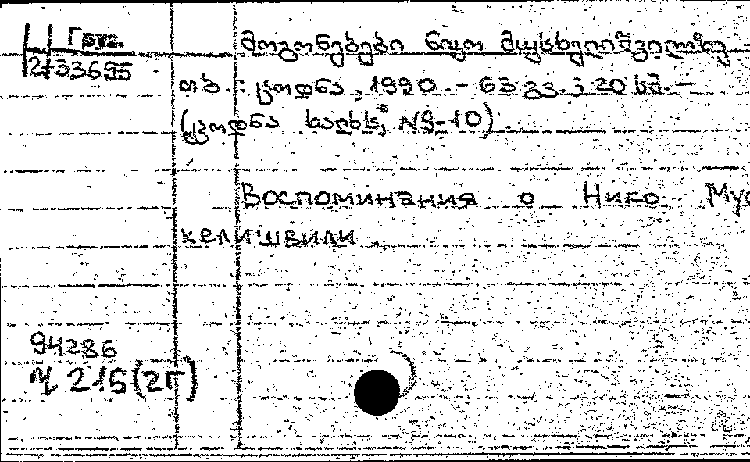 Груз.
2133695
მოგონებები ნიკო მუსხელიშვილზე
თბ. : ცოდნა, 1990. - 63 გვ. ; 20 სმ. –
(ცოდნა ხალხს; N9-10).
Воспоминания о Нико Мус
хелишвили.
94286
216(2Г)